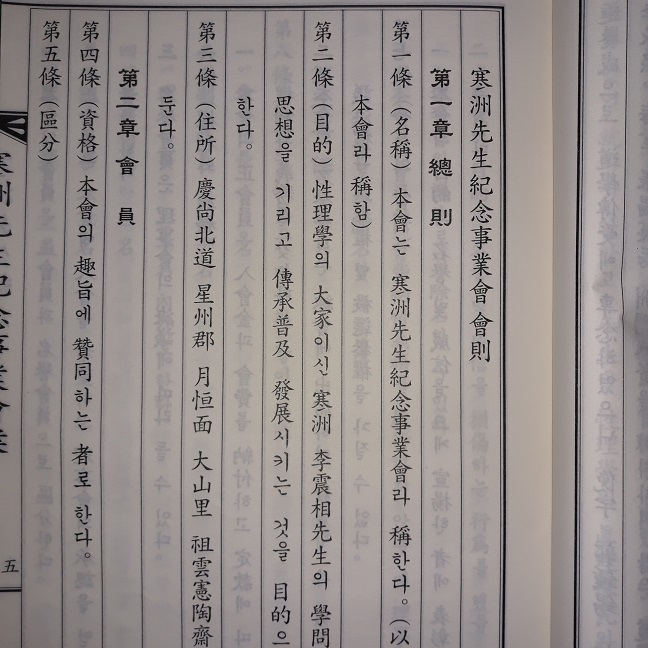 寒洲先生紀念事業會 會則
第一章 總則
第一條 (名稱) 本會는 寒洲先生紀念事業會라 稱한다。(以
本會라 稱함)
第二條 (目的) 性理學의 大家이신 寒洲 李震相先生의 學問
思想을 기리고 傳承普及 發展시키는 것을 目的으
한다。
第三條 (住所) 慶尚北道 星州郡 月恒面 大山里 祖雲憲陶齋
둔다。
第二章 會 員
第四條 (資格) 本會의 趣旨에 贊同하는 者로 한다。
第五條 (區分)
寒洲先生紀念事業會
五